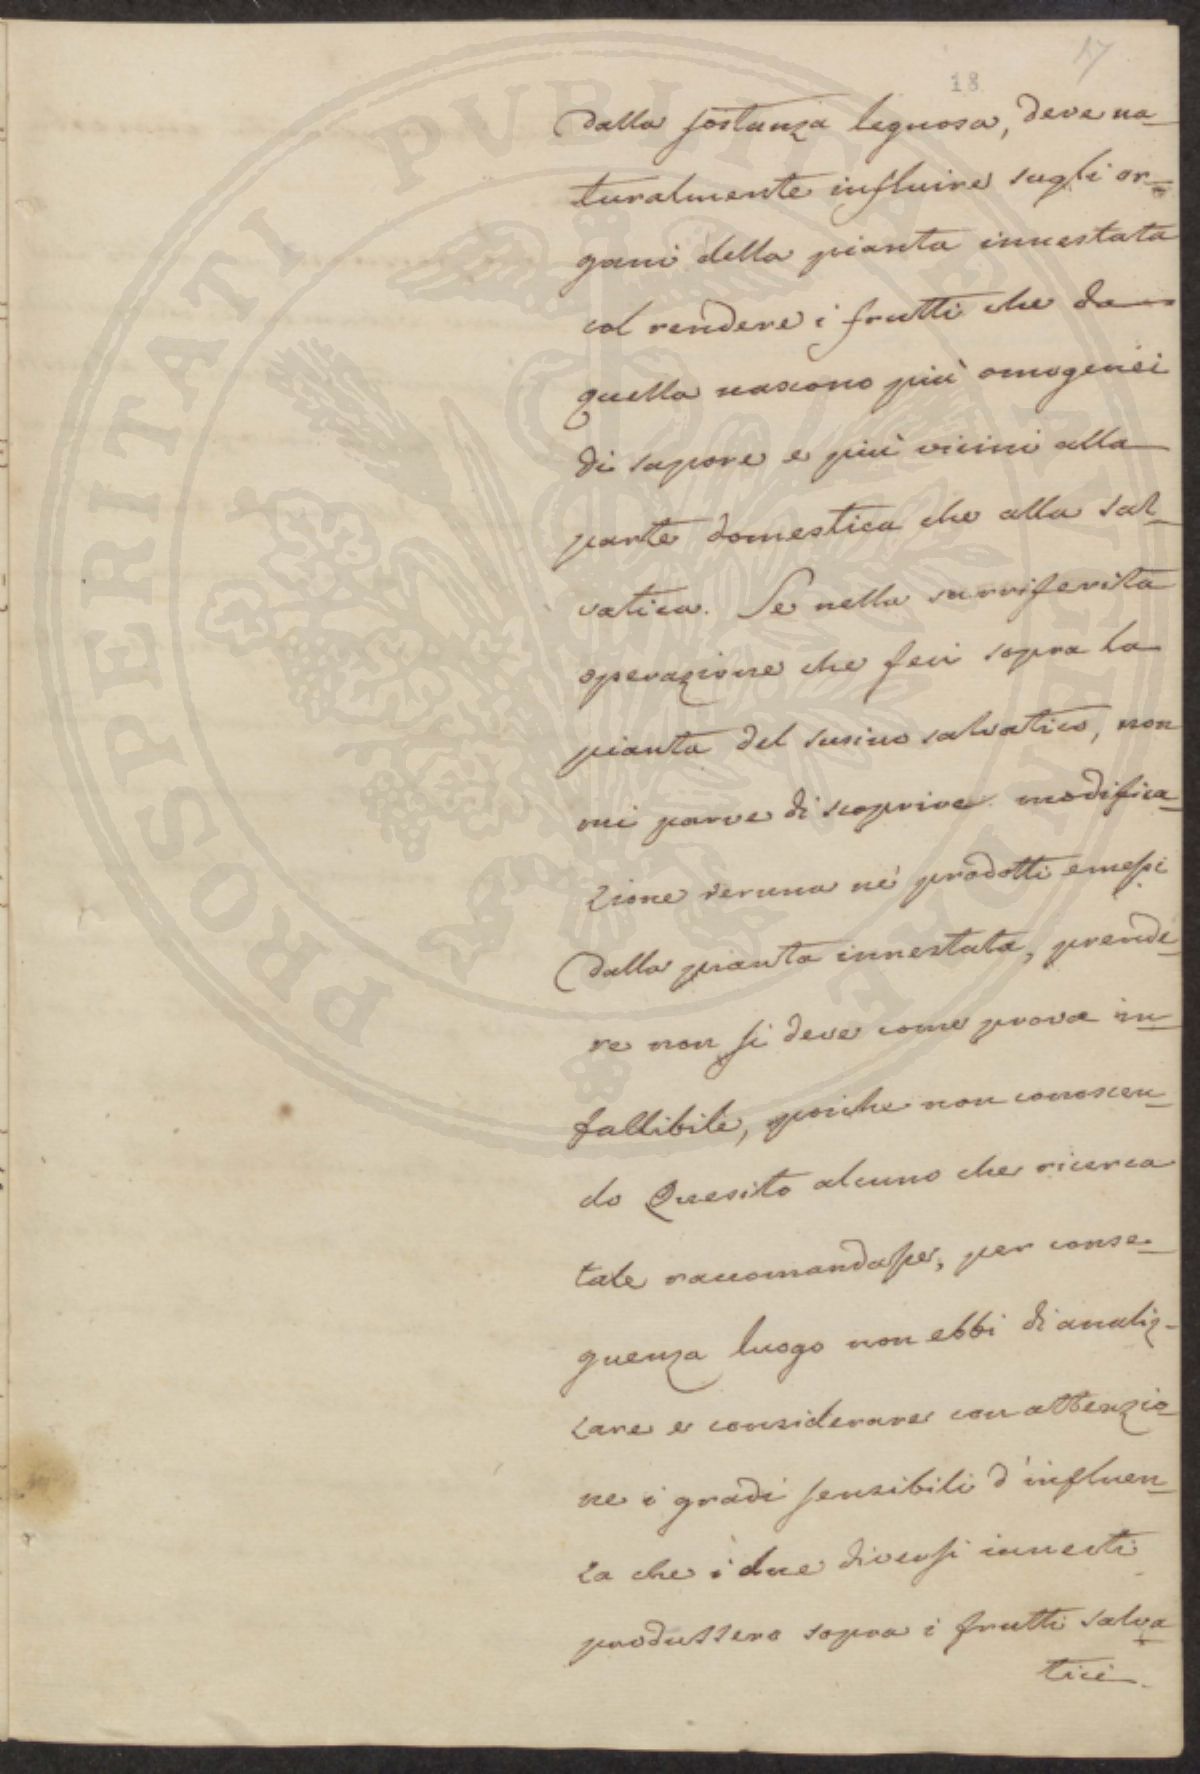 17
18
dalla sostanza legnosa, deve na-
turalmente influire sugli or-
gani della pianta innestata
col rendere i frutti che da
quella nascono più omogenei
di sapore e più vicini alla
parte domestica che alla sal-
vatica. Se nella surriferita
operazione che feci sopra la
pianta del susino salvatico, non
mi parve di scoprire modifica-
zione veruna nè prodotti emessi
dalla pianta innestata, prende-
re non si deve come prova in-
fallibile, poiche non conoscen-
do Quesito alcuno che ricerca
tale raccomandasse, per conse-
guenza luogo non ebbi di analiz-
zare e considerare con attenzio-
ne i gradi sensibili d'influen-
za che i due diversi innesti
produssero sopra i frutti salva
tici.
PROSPERITATI PVBLICAE AVGENDAE